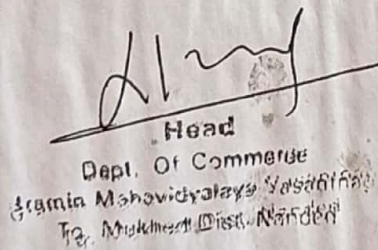 Head
Dept. Of Commerce
Gramin Mahavidyalaya Vasantnagar
Tq. Mukhed Dist. Nanded